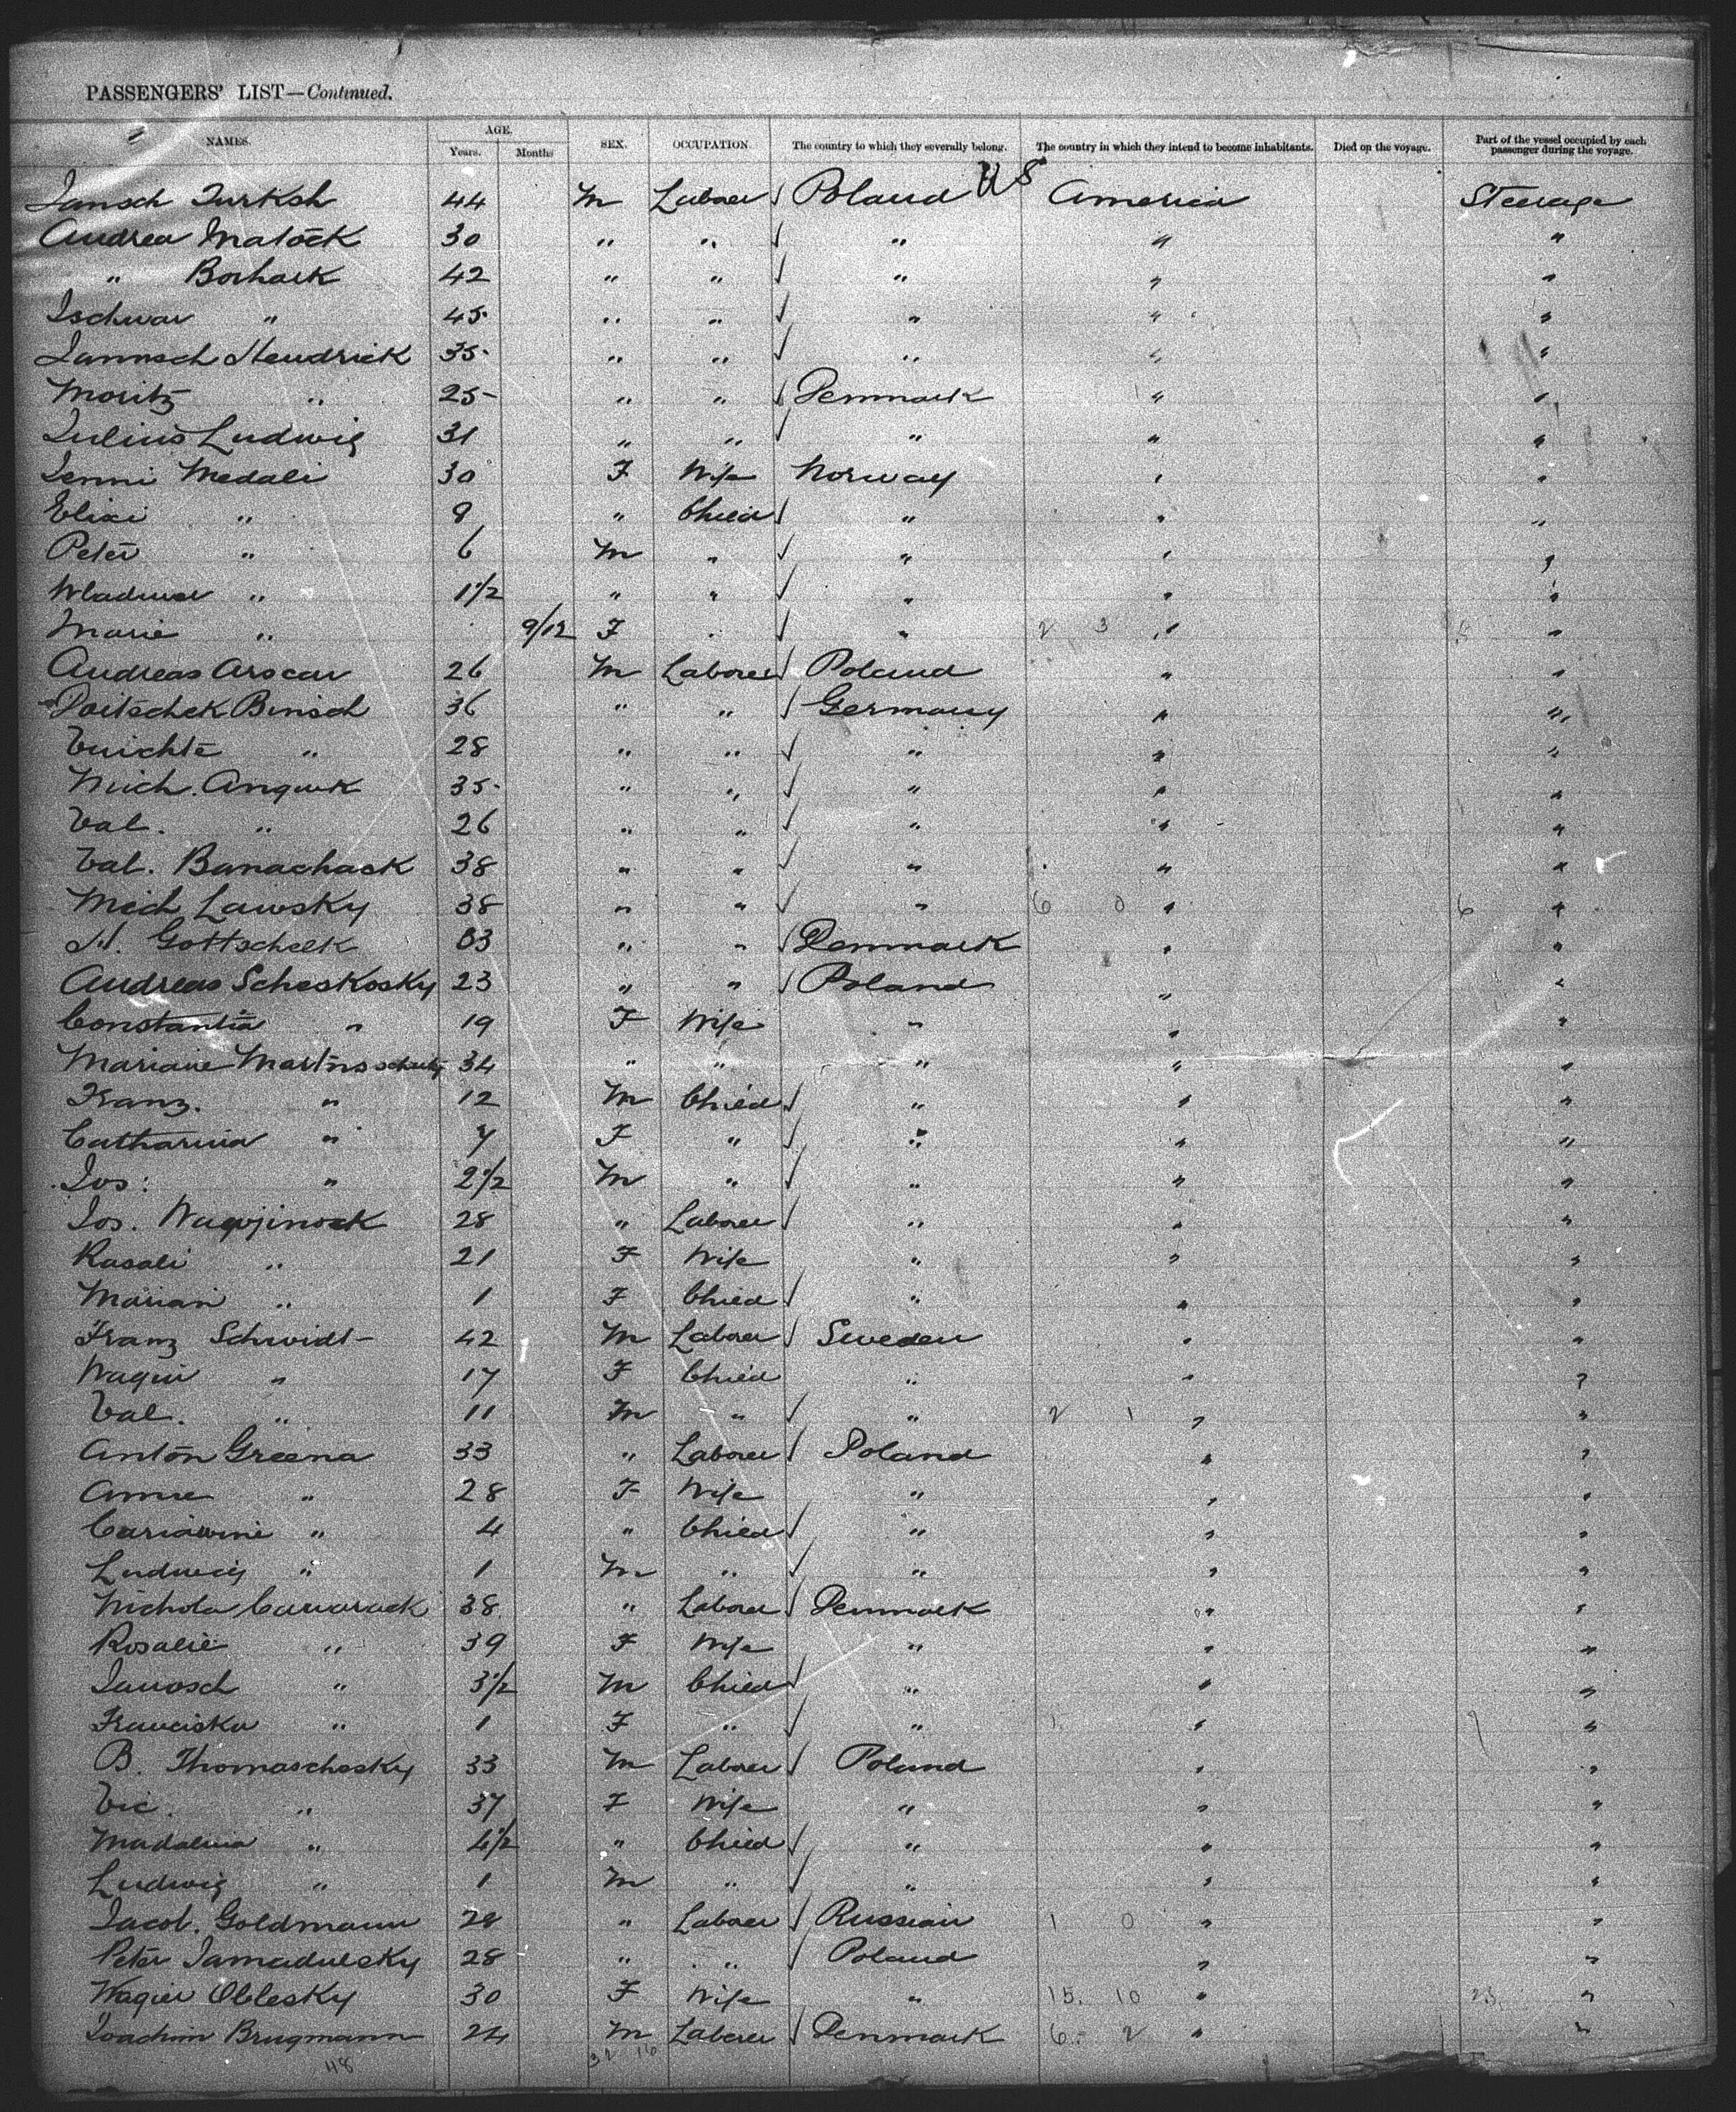 PASSENGERS' LIST—Continued.
NAMES. AGE. Years. Months SEX. OCCUPATION. The country to which they severally belong. The country in which they intend to become inhabitants. Died on the voyage. Part of the vessel occupied by each passenger during the voyage.
Jansch Turksh 44 M Laborer √ Poland US America Steerage
Andrea Matock 30 " " √ " " "
" Borhack 42 " " √ " " "
Ischwar " 45 " " √ " " "
Jannsch Hendrick 35 " " √ " " "
Moritz " 25 " " √ Denmark " "
Julius Ludwig 31 " " √ " " "
Jenni Medali 30 F Wife Norway " "
Elixi " 9 " Child √ " " "
Peter " 6 M " √ " " "
" 1 1/2 " " √ " " "
Marie " 9/12 F " √ " 2 3 " 5 "
Andreas Arscar 26 M Laborer √ Poland " "
Doitschek Binsch 36 " " √ Germany " "
" 28 " " √ " " "
Mich. 35 " " √ " " "
Val. " 26 " " √ " " "
Val. Banachack 38 " " √ " " "
Mich Lawsky 38 " " √ " 6 0 " 6 "
H. Gottscheck 33 " " √ Denmark " "
Andreas Scheskosky 23 " " √ Poland " "
Constantia " 19 F Wife " " "
Mariane 34 " " " " "
Franz. " 12 M Child √ " " "
Catharina " 7 F " √ " " "
Jos: " 2 1/2 M " √ " " "
Jos. 28 " Laborer √ " " "
Rasali " 21 F Wife " " "
Marian " 1 F Child √ " " "
Franz Schmidt 42 M Laborer √ Sweden " "
" 17 F Child " " "
Val. " 11 M " √ " 2 1 " "
Anton Greena 33 " Laborer √ Poland " "
Anne " 28 F Wife " " "
" 4 " Child √ " " "
Ludwig " 1 M " √ " " "
Nichola 38 " Laborer √ Denmark " "
Rosalie " 39 F Wife " " "
Janosch " 3 1/2 M Child √ " " "
Franciska " 1 F " √ " " "
B. Thomaschosky 33 M Laborer √ Poland " "
Vic. " 37 F Wife " " "
Madalina " 4 1/2 " Child √ " " "
Ludwig " 1 M " √ " " "
Jacob. Goldmann 28 " Laborer √ Russian 1 0 " "
Peter Jamadulsky 28 " " √ Poland " "
Oblesky 30 F Wife " 15. 10 " 25. "
Joachim Brugmann 24 M Laborer √ Denmark 6. 2 " "
48 32 16